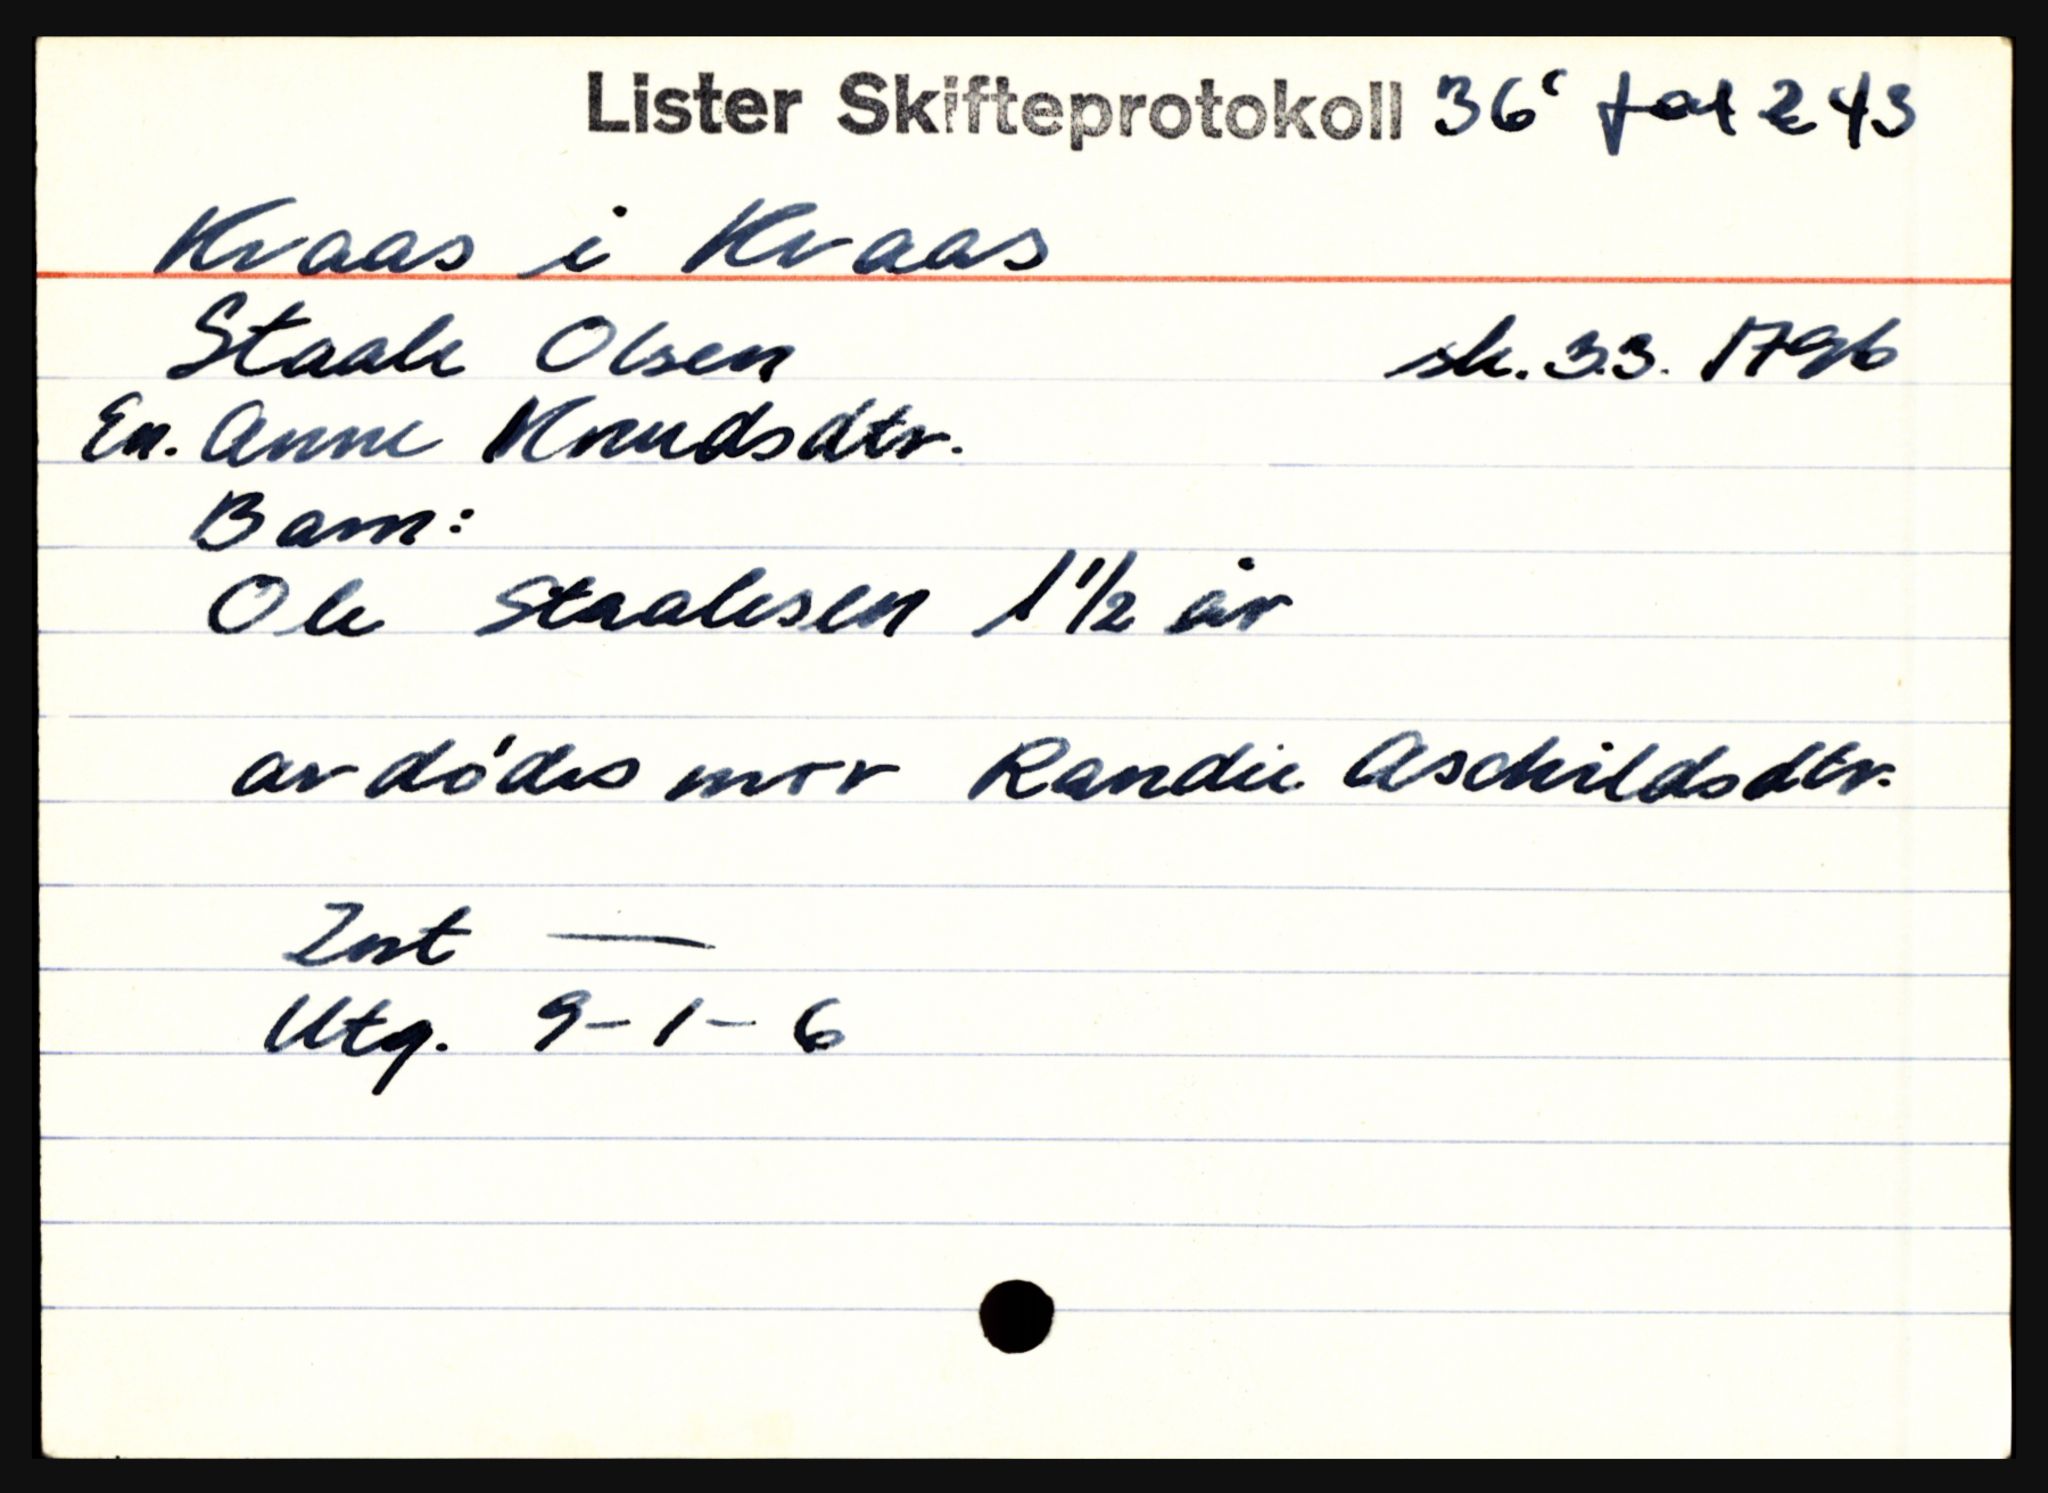 Lister Skifteprotokoll 36c fol 243
Kvaas i Kvaas
Staale Olsen sk. 3.3. 1796
En. Anne Knudsdtr.
Barn:
Ole Staalesen 1 1/2 år
avdødes mor Randie Aschildsdtr.
Int —
Utg. 9-1-6